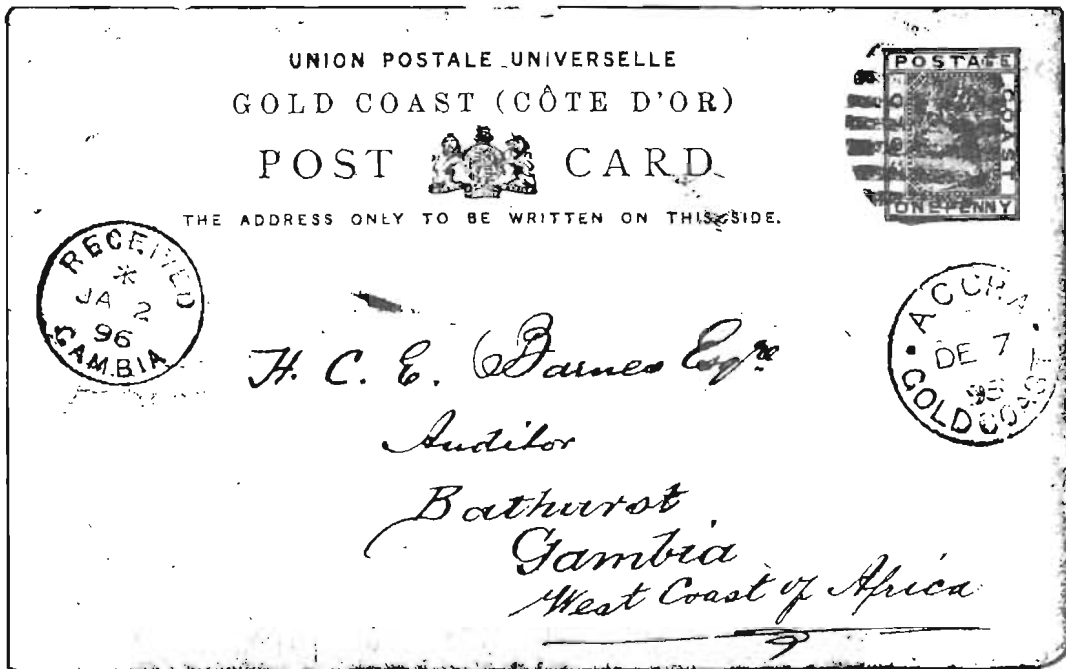 UNION POSTALE UNIVERSELLE
GOLD COAST (CÔTE D'OR)
POST CARD
THE ADDRESS ONLY TO BE WRITTEN ON THIS SIDE.
POSTAGE
GOLD
COAST
ONE PENNY
RECEIVED
JA 2
96
GAMBIA
ACCRA
DE 7
95
GOLD COAST
H. C. E. Barnes Esqre
Auditor
Bathurst
Gambia
West Coast of Africa